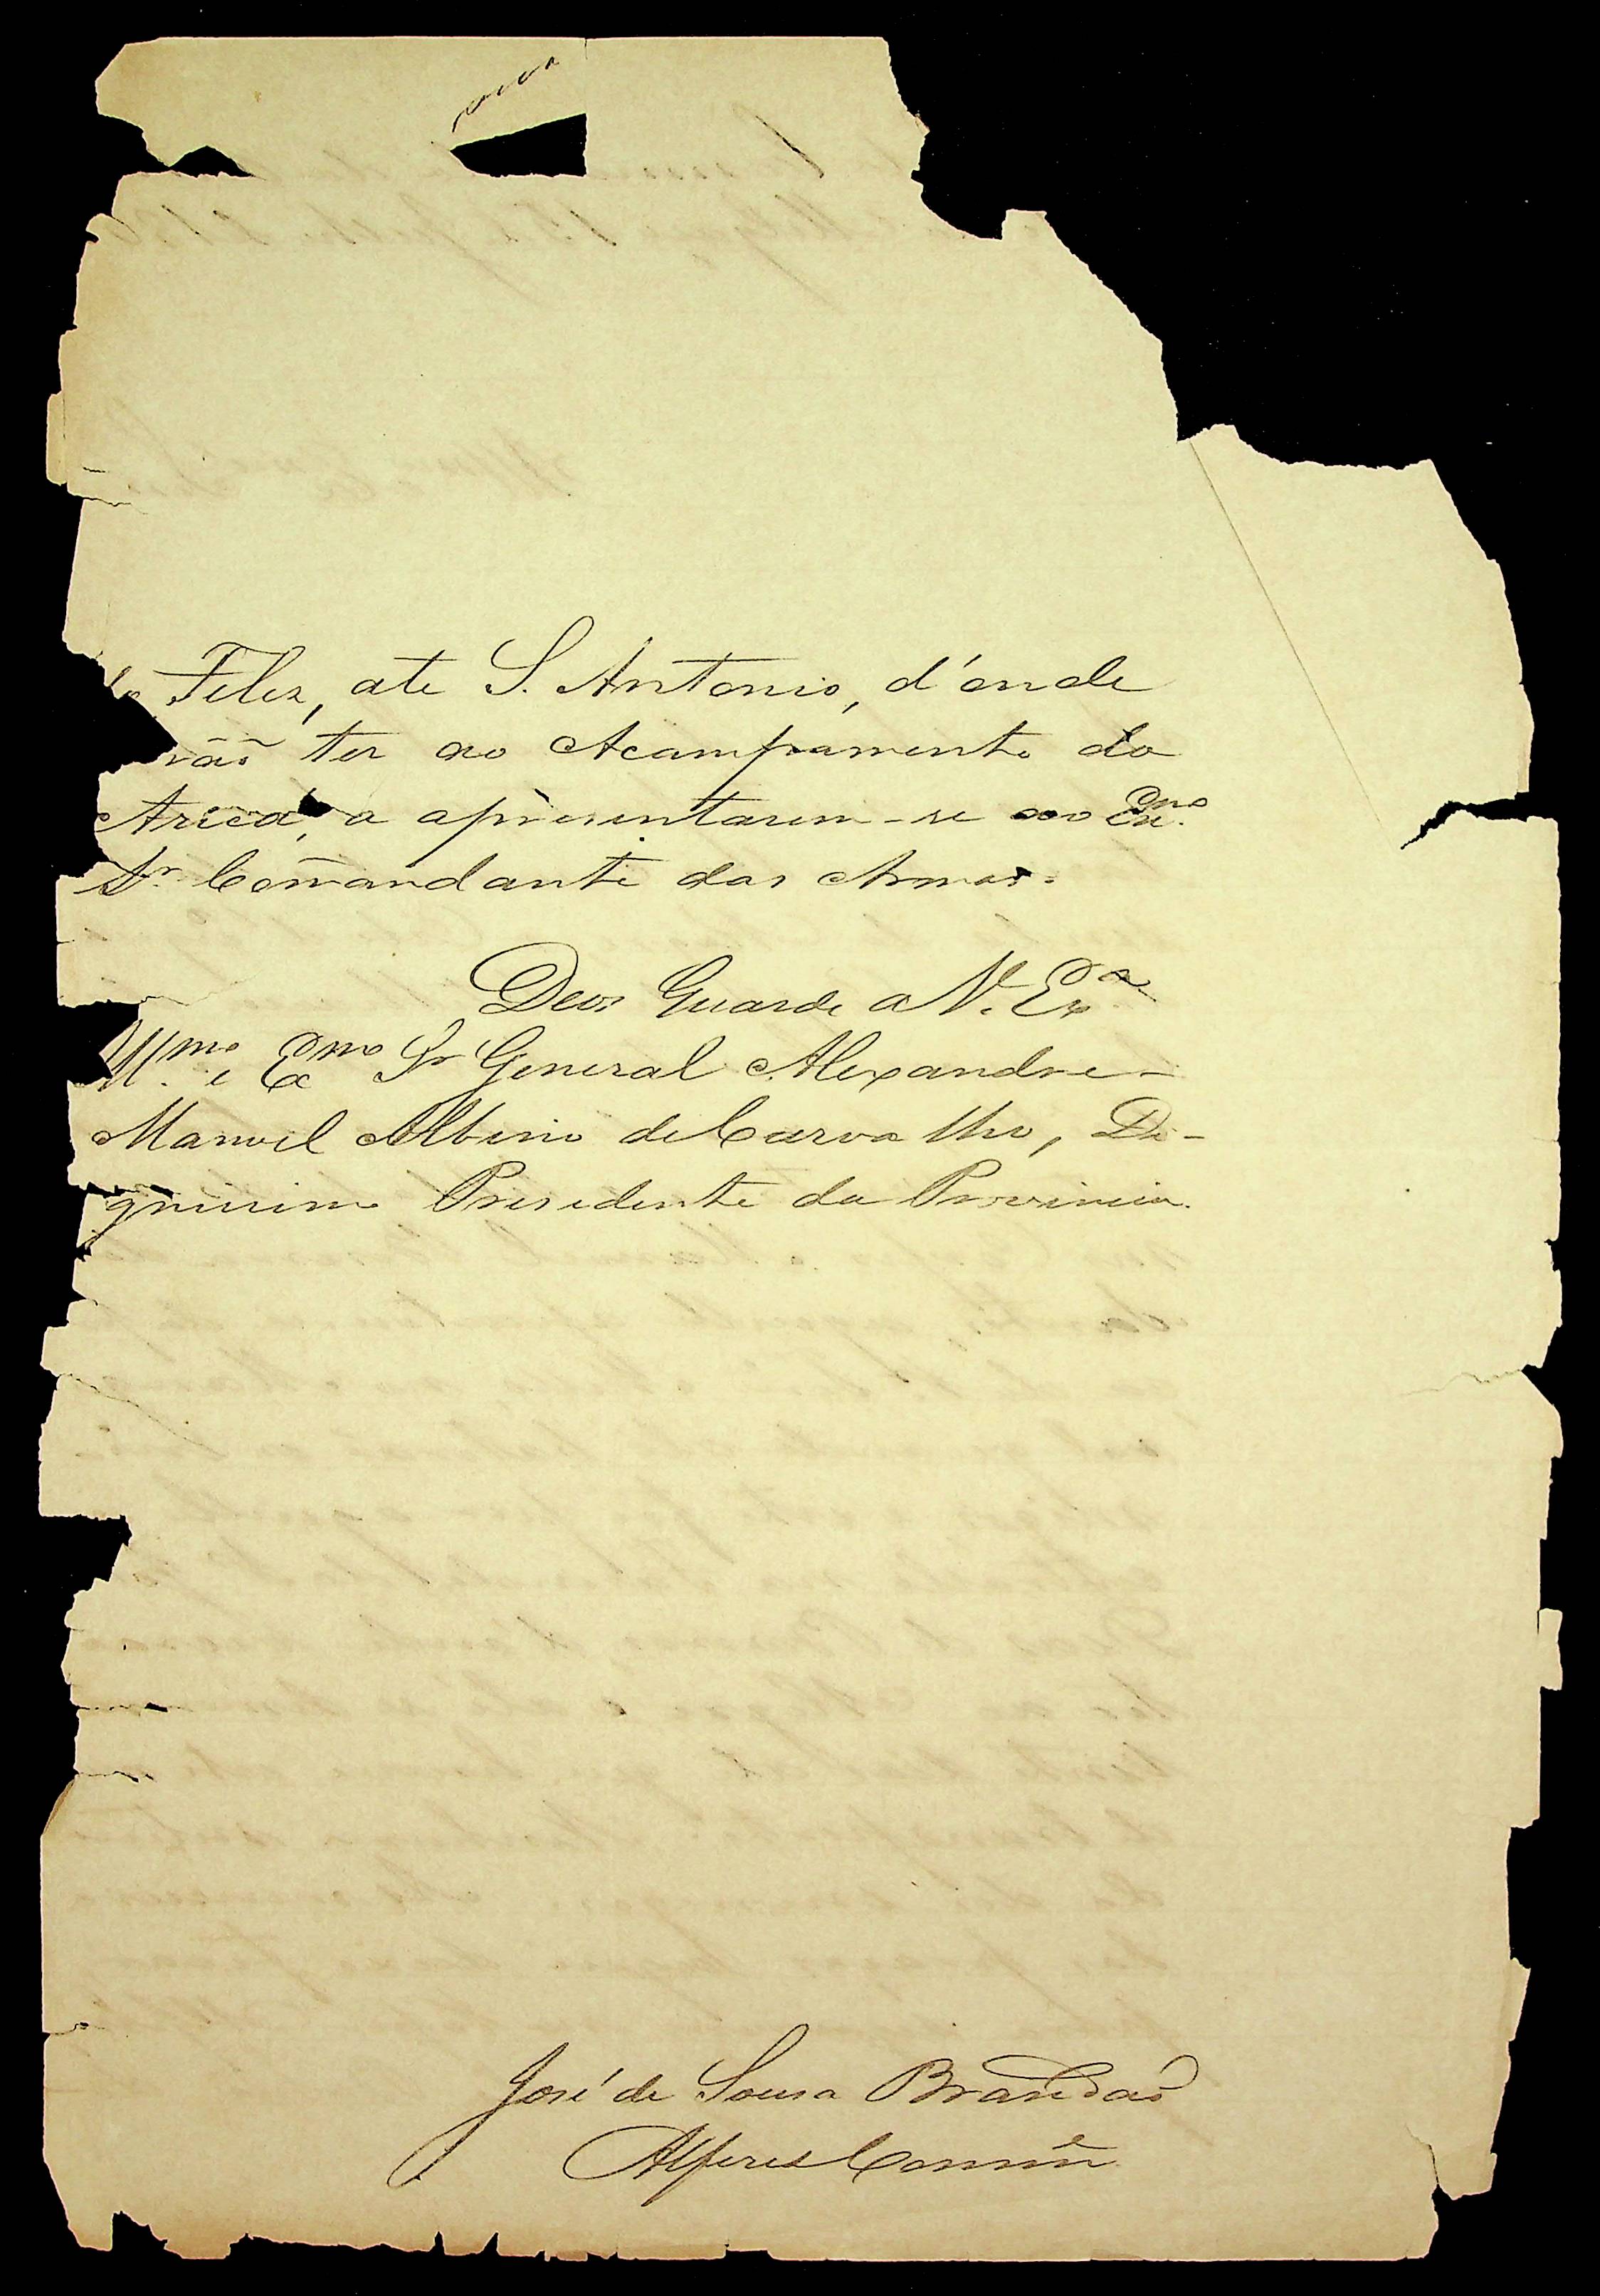 Felis, ate S. Antonio, d'onde
rão ter ao Acampamento do
Aricá, a apresentarem-se ao Exmo
Sr. Com̃andante das Armas.
Deos Guarde a V. Exa
Illmo. e Exmo Sr General Alexandre
Manoel Albino de Carvalho, Di-
gnissimo Presidente da Provincia.
José de Sousa Brandão
Alferes Com̃e